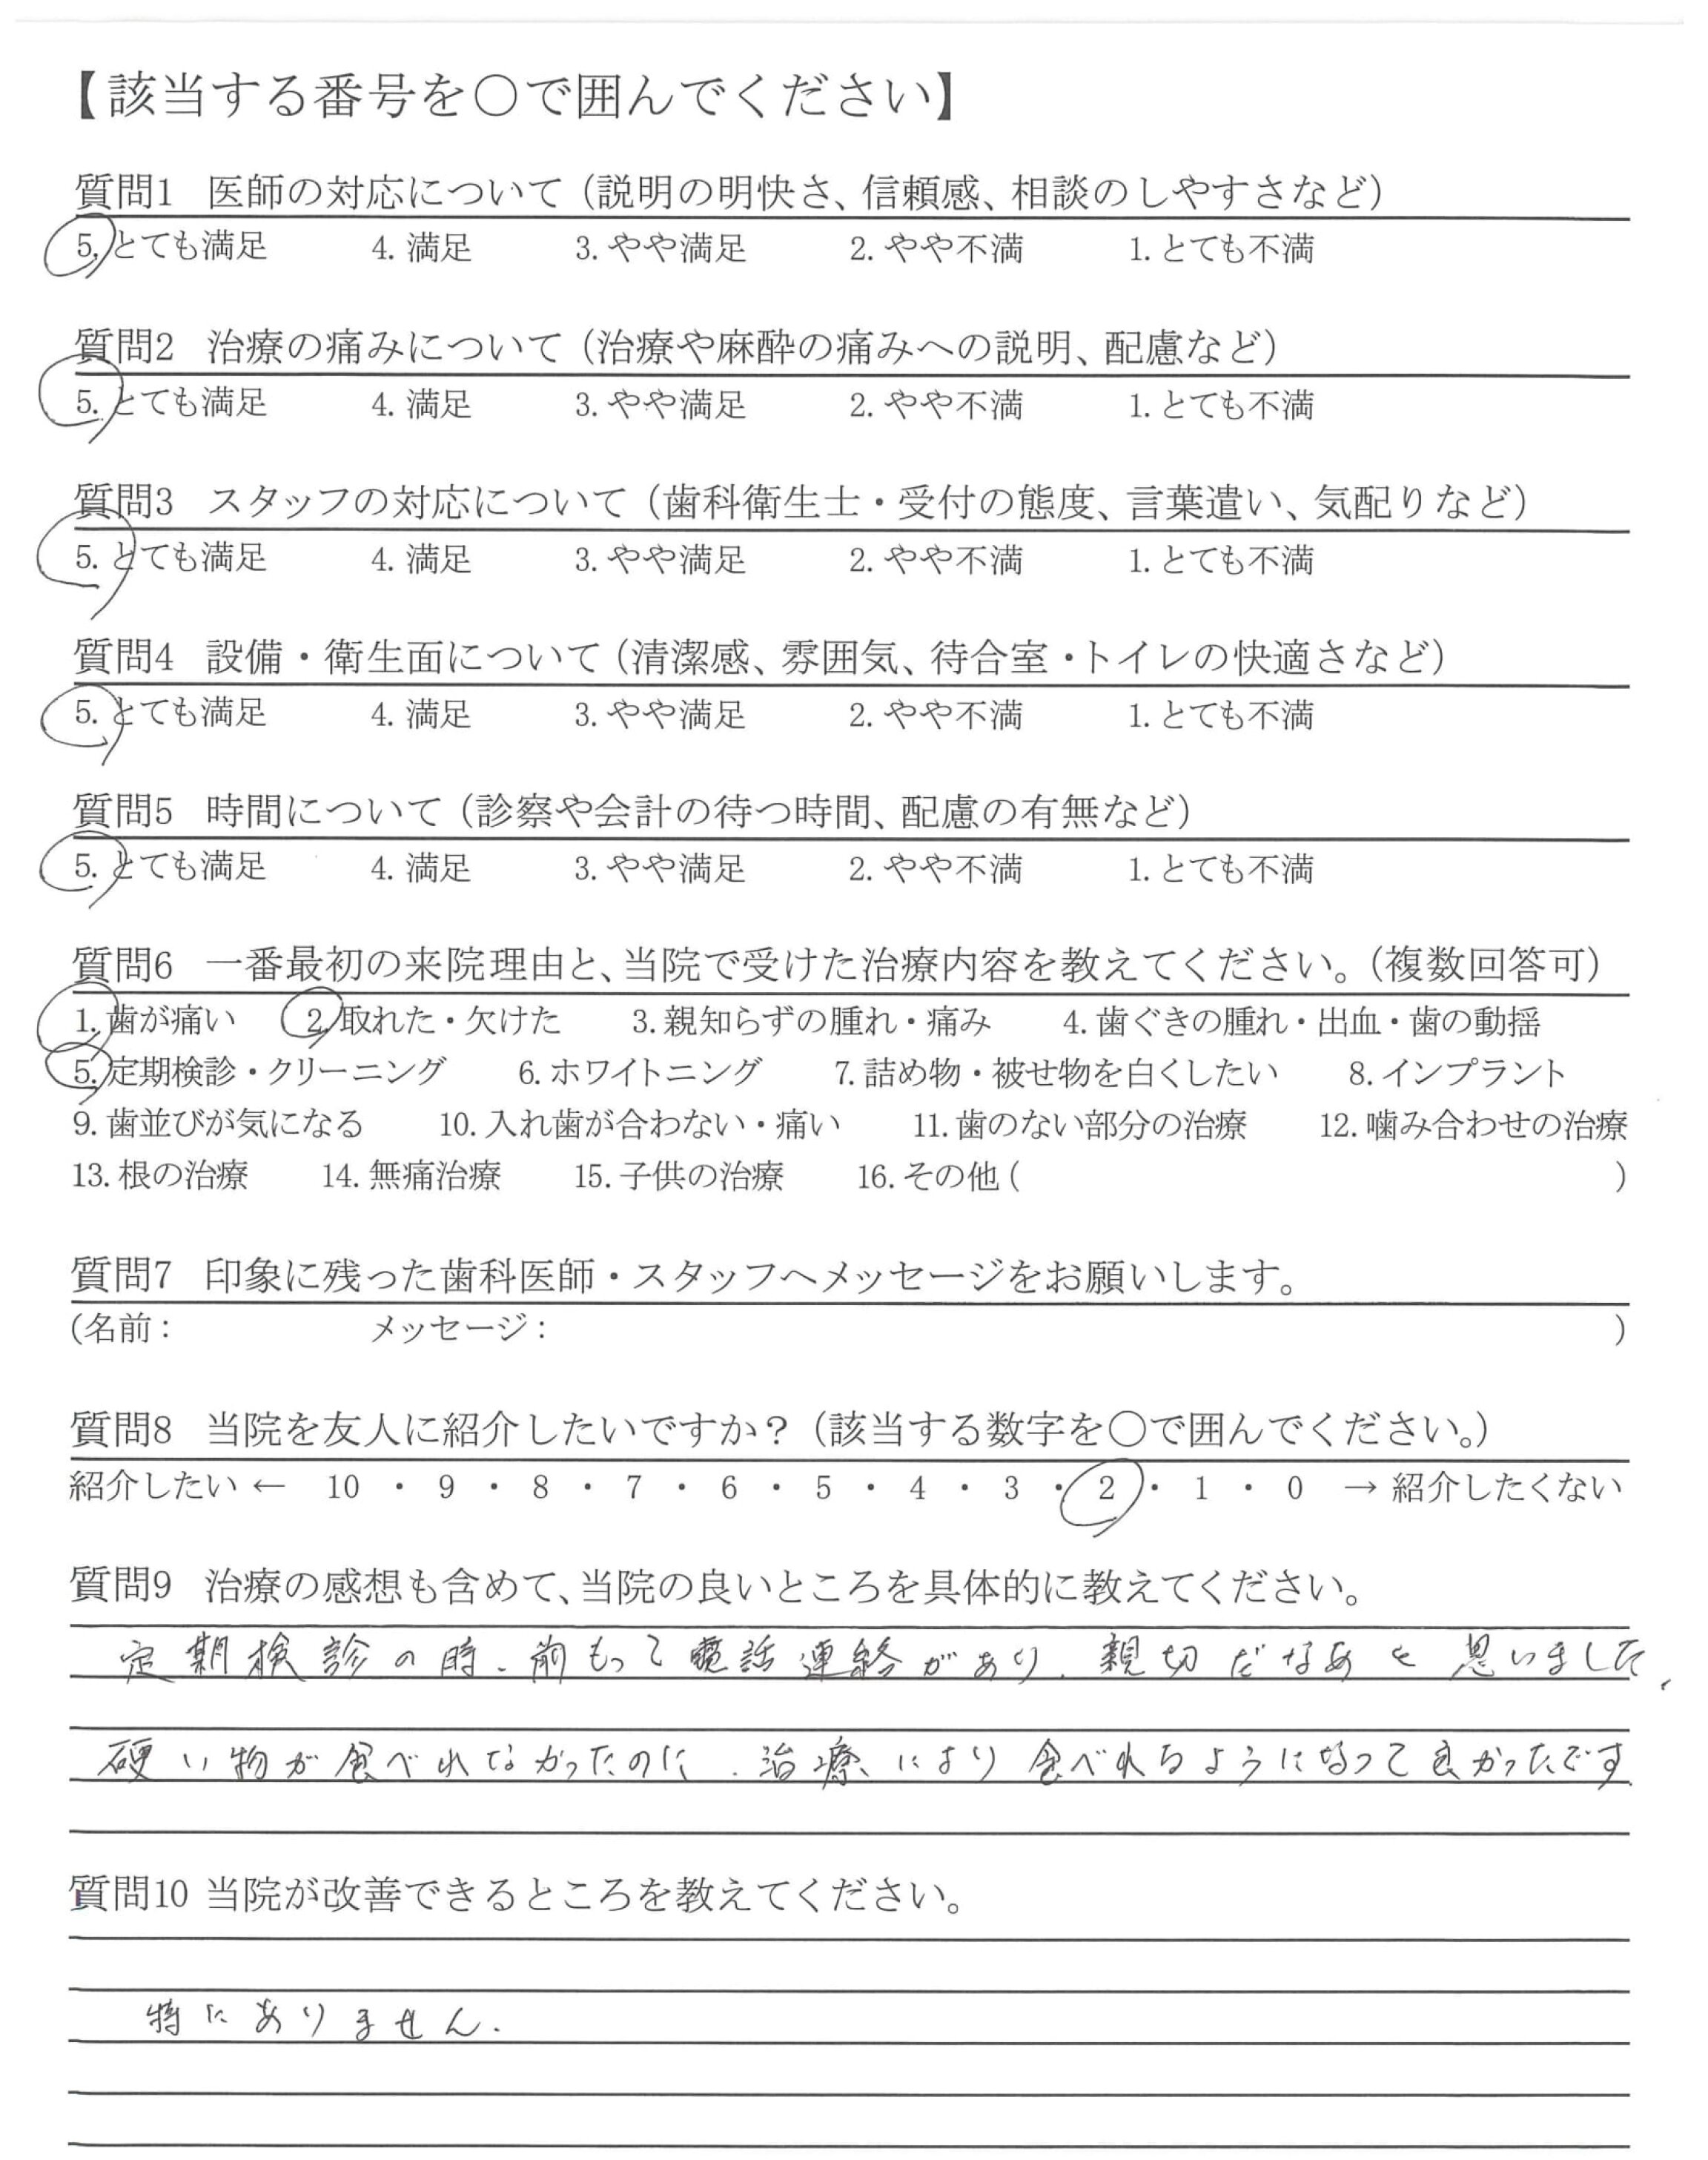 【該当する番号を○で囲んでください】
質問1 医師の対応について（説明の明快さ、信頼感、相談のしやすさなど）
5. とても満足 4. 満足 3. やや満足 2. やや不満 1. とても不満
質問2 治療の痛みについて（治療や麻酔の痛みへの説明、配慮など）
5. とても満足 4. 満足 3. やや満足 2. やや不満 1. とても不満
質問3 スタッフの対応について（歯科衛生士・受付の態度、言葉遣い、気配りなど）
5. とても満足 4. 満足 3. やや満足 2. やや不満 1. とても不満
質問4 設備・衛生面について（清潔感、雰囲気、待合室・トイレの快適さなど）
5. とても満足 4. 満足 3. やや満足 2. やや不満 1. とても不満
質問5 時間について（診察や会計の待つ時間、配慮の有無など）
5. とても満足 4. 満足 3. やや満足 2. やや不満 1. とても不満
質問6 一番最初の来院理由と、当院で受けた治療内容を教えてください。（複数回答可）
1. 歯が痛い 2. 取れた・欠けた 3. 親知らずの腫れ・痛み 4. 歯ぐきの腫れ・出血・歯の動揺
5. 定期検診・クリーニング 6. ホワイトニング 7. 詰め物・被せ物を白くしたい 8. インプラント
9. 歯並びが気になる 10. 入れ歯が合わない・痛い 11. 歯のない部分の治療 12. 噛み合わせの治療
13. 根の治療 14. 無痛治療 15. 子供の治療 16. その他（ ）
質問7 印象に残った歯科医師・スタッフへメッセージをお願いします。
（名前： メッセージ： ）
質問8 当院を友人に紹介したいですか？（該当する数字を○で囲んでください。）
紹介したい ← 10 ・ 9 ・ 8 ・ 7 ・ 6 ・ 5 ・ 4 ・ 3 ・ 2 ・ 1 ・ 0 → 紹介したくない
質問9 治療の感想も含めて、当院の良いところを具体的に教えてください。
定期検診の時、前もって電話連絡があり、親切だなあと思いました。
硬い物が食べれなかったのに、治療により食べれるようになって良かったです。
質問10 当院が改善できるところを教えてください。
特にありません。